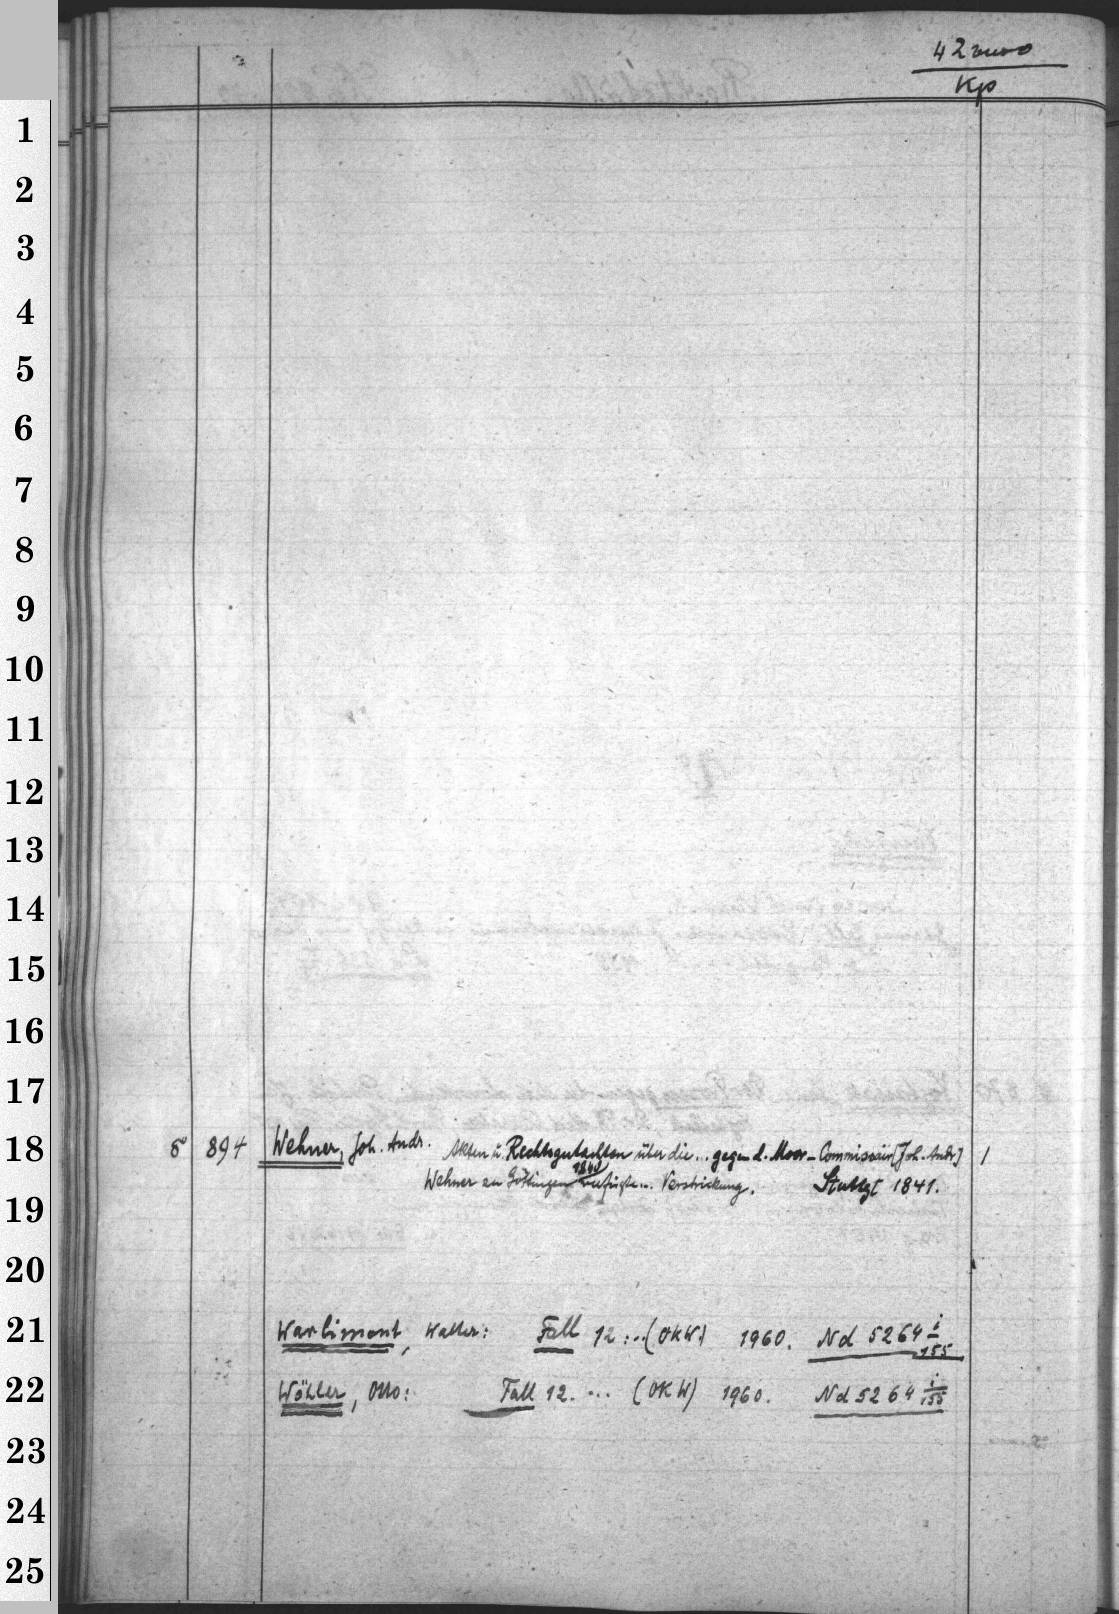 42
Kp
1
2
3
4
5
6
7
8
9
10
11
12
13
14
15
16
17
18
19
20
21
22
23
24
25
8° 894 Wehner, Joh. Andr. Akten u. Rechtsgutachten über die... gegen d. Moor-Commissair [Joh. Andr.] 1
Wehner zu Göttingen 1840 verfügte... Verstrickung. Stuttgt 1841.
Warlimont, Walter: Fall 12:..(OKW) 1960. Nd 5264 i/155
Wöhler, Otto: Fall 12. ... (OKW) 1960. Nd 5264 i/155